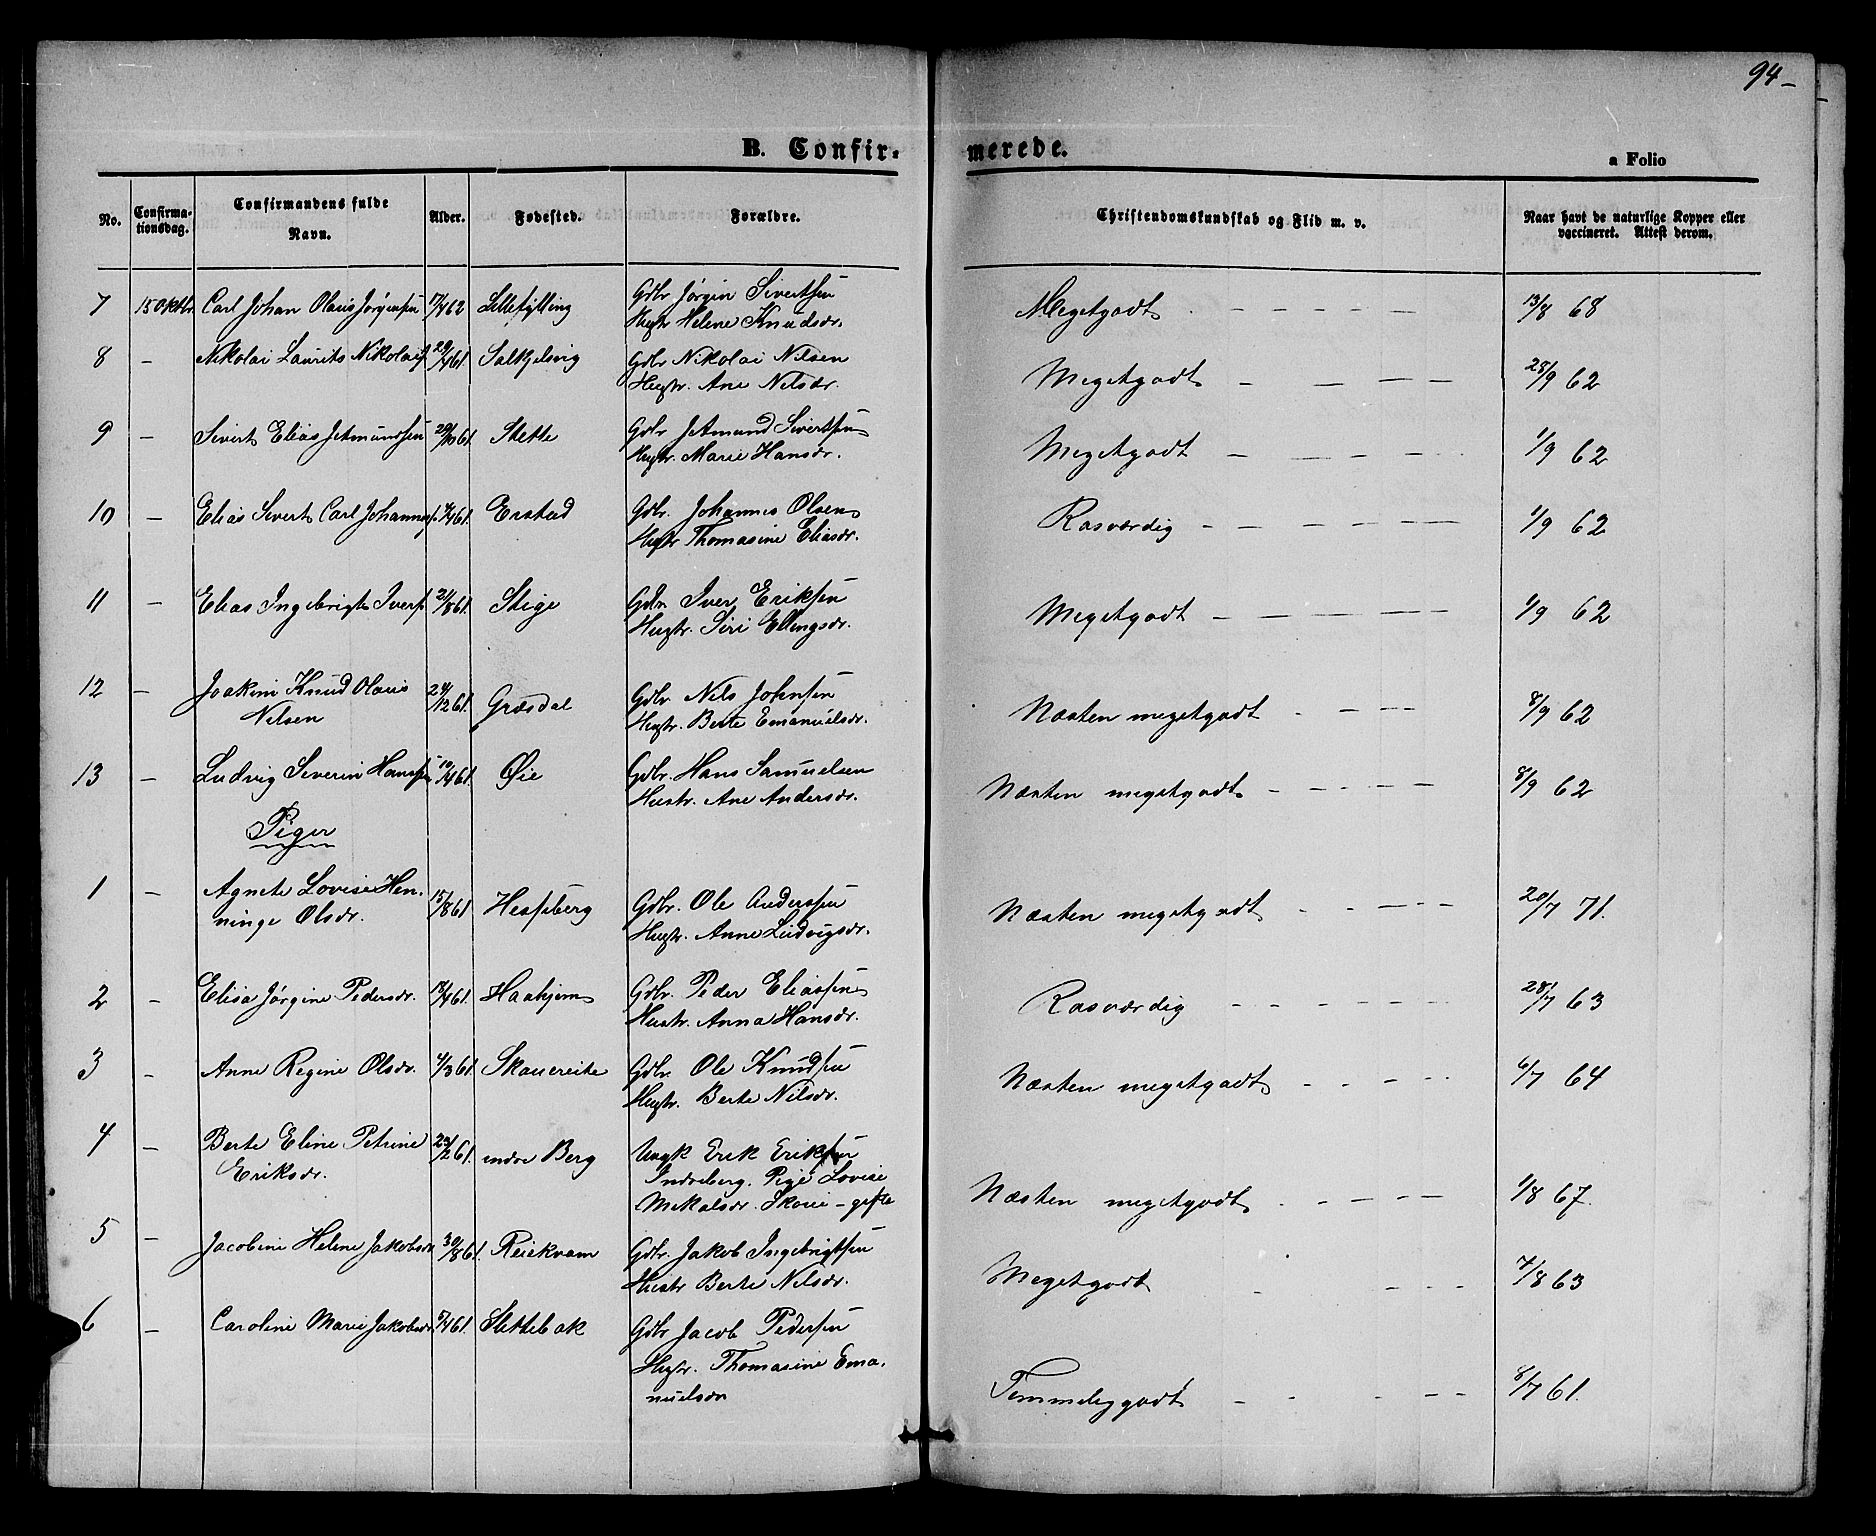 94
B. Confir- merede.
a Folio
No. Confirma-tionsdag. Confirmandens fulde Navn. Alder. Fødested. Forældre. Christendomskundskab og Flid m. v. Naar havt de naturlige Kopper eller vaccineret. Attest derom.
7 15 Oktbr. Carl Johan Olaus Jørgensen 17/4 62 Lillefylling Gdbr Jørgen Sivertsen Megetgodt 13/8 68
Hustr Helene Knudsdr.
8 - Nikolai Laurits Nikolais. 29/4 61. Salkjelsvig Gdbr Nikolai Nilsen Megetgodt 28/9 62
Hustr. Ane Nilsdr.
9 - Sivert Elias Jetmundsen 29/10 61. Stette Gdbr Jetmund Sivertsen Megetgodt 1/9 62
Hustr. Marie Hansdr.
10 - Elias Sivert Carl Johannes. 61. Erstad Gdbr. Johannes Olsen Rosværdig 1/9 62
Hustr Thomasine Eliasdr.
11 - Elias Ingebrigt Ivers. 21/8 61. Stige Gdbr Iver Eriksen Megetgodt 1/9 62
Hustr. Siri Ellingsdr.
12 - Joakim Knud Olaus 24/12 61. Græsdal Gdbr Nils Johnsen Næsten megetgodt 8/9 62
Nilsen Hustr. Berte Emanuelsdr.
13 - Ludvig Severin Hanssen 10/4 61. Øie Gdbr. Hans Samuelsen Næsten megetgodt 8/9 62
Hustr. Ane Andersdr.
Piger
1 - Agnete Lovise Hen- 15/8 61 Hessberg Gdbr. Ole Anderssen Næsten megetgodt 20/7 71.
ninge Olsdr. Hustr. Anne Ludvigsdr.
2 - Elisa Jørgine Pedersdr. 61. Haahjem Gdbr. Peder Eliassen Rosværdig 28/7 63
Hustr. Anna Hansdr.
3 - Anne Regine Olsdr. 4/3 61. Skouereite Gdbr. Ole Knudsen Næsten megetgodt 6/7 64
Hustr. Berte Nilsdr.
4 - Berte Eline Petrine 23/2 61. indre Berg Ungk Erik Eriksen
Eriksdr. Indreberg. Pige Lovise
Mikalsdr. Skoue - gifte Næsten megetgodt 1/8 67.
5 - Jacobine Helene Jakobsdr 30/8 61. Reiekvam Gdbr. Jakob Ingebrigtsen Megetgodt 7/8 63
Hustr Berte Nilsdr.
6 - Caroline Marie Jakobsdr. 5/4 61. Slettebak Gdbr Jacob Pedersen
Hustr. Thomasine Ema-
nuelsdr Temmeliggodt 8/7 61.